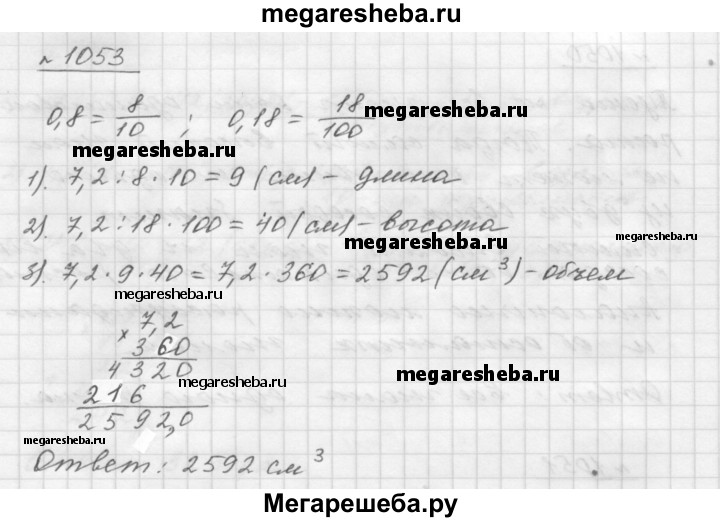 megaresheba.ru
№ 1053
0,8 = 8/10 ; 0,18 = 18/100
megaresheba.ru
megaresheba.ru
1). 7,2 : 8 · 10 = 9 (см) - длина
2). 7,2 : 18 · 100 = 40 (см) - высота
megaresheba.ru
megaresheba.ru
3). 7,2 · 9 · 40 = 7,2 · 360 = 2592 (см³) - объем
megaresheba.ru
× 7,2
360
megaresheba.ru
4320
megaresheba.ru
megaresheba.ru
216
2592,0
megaresheba.ru
Ответ: 2592 см³
Мегарешеба.ру